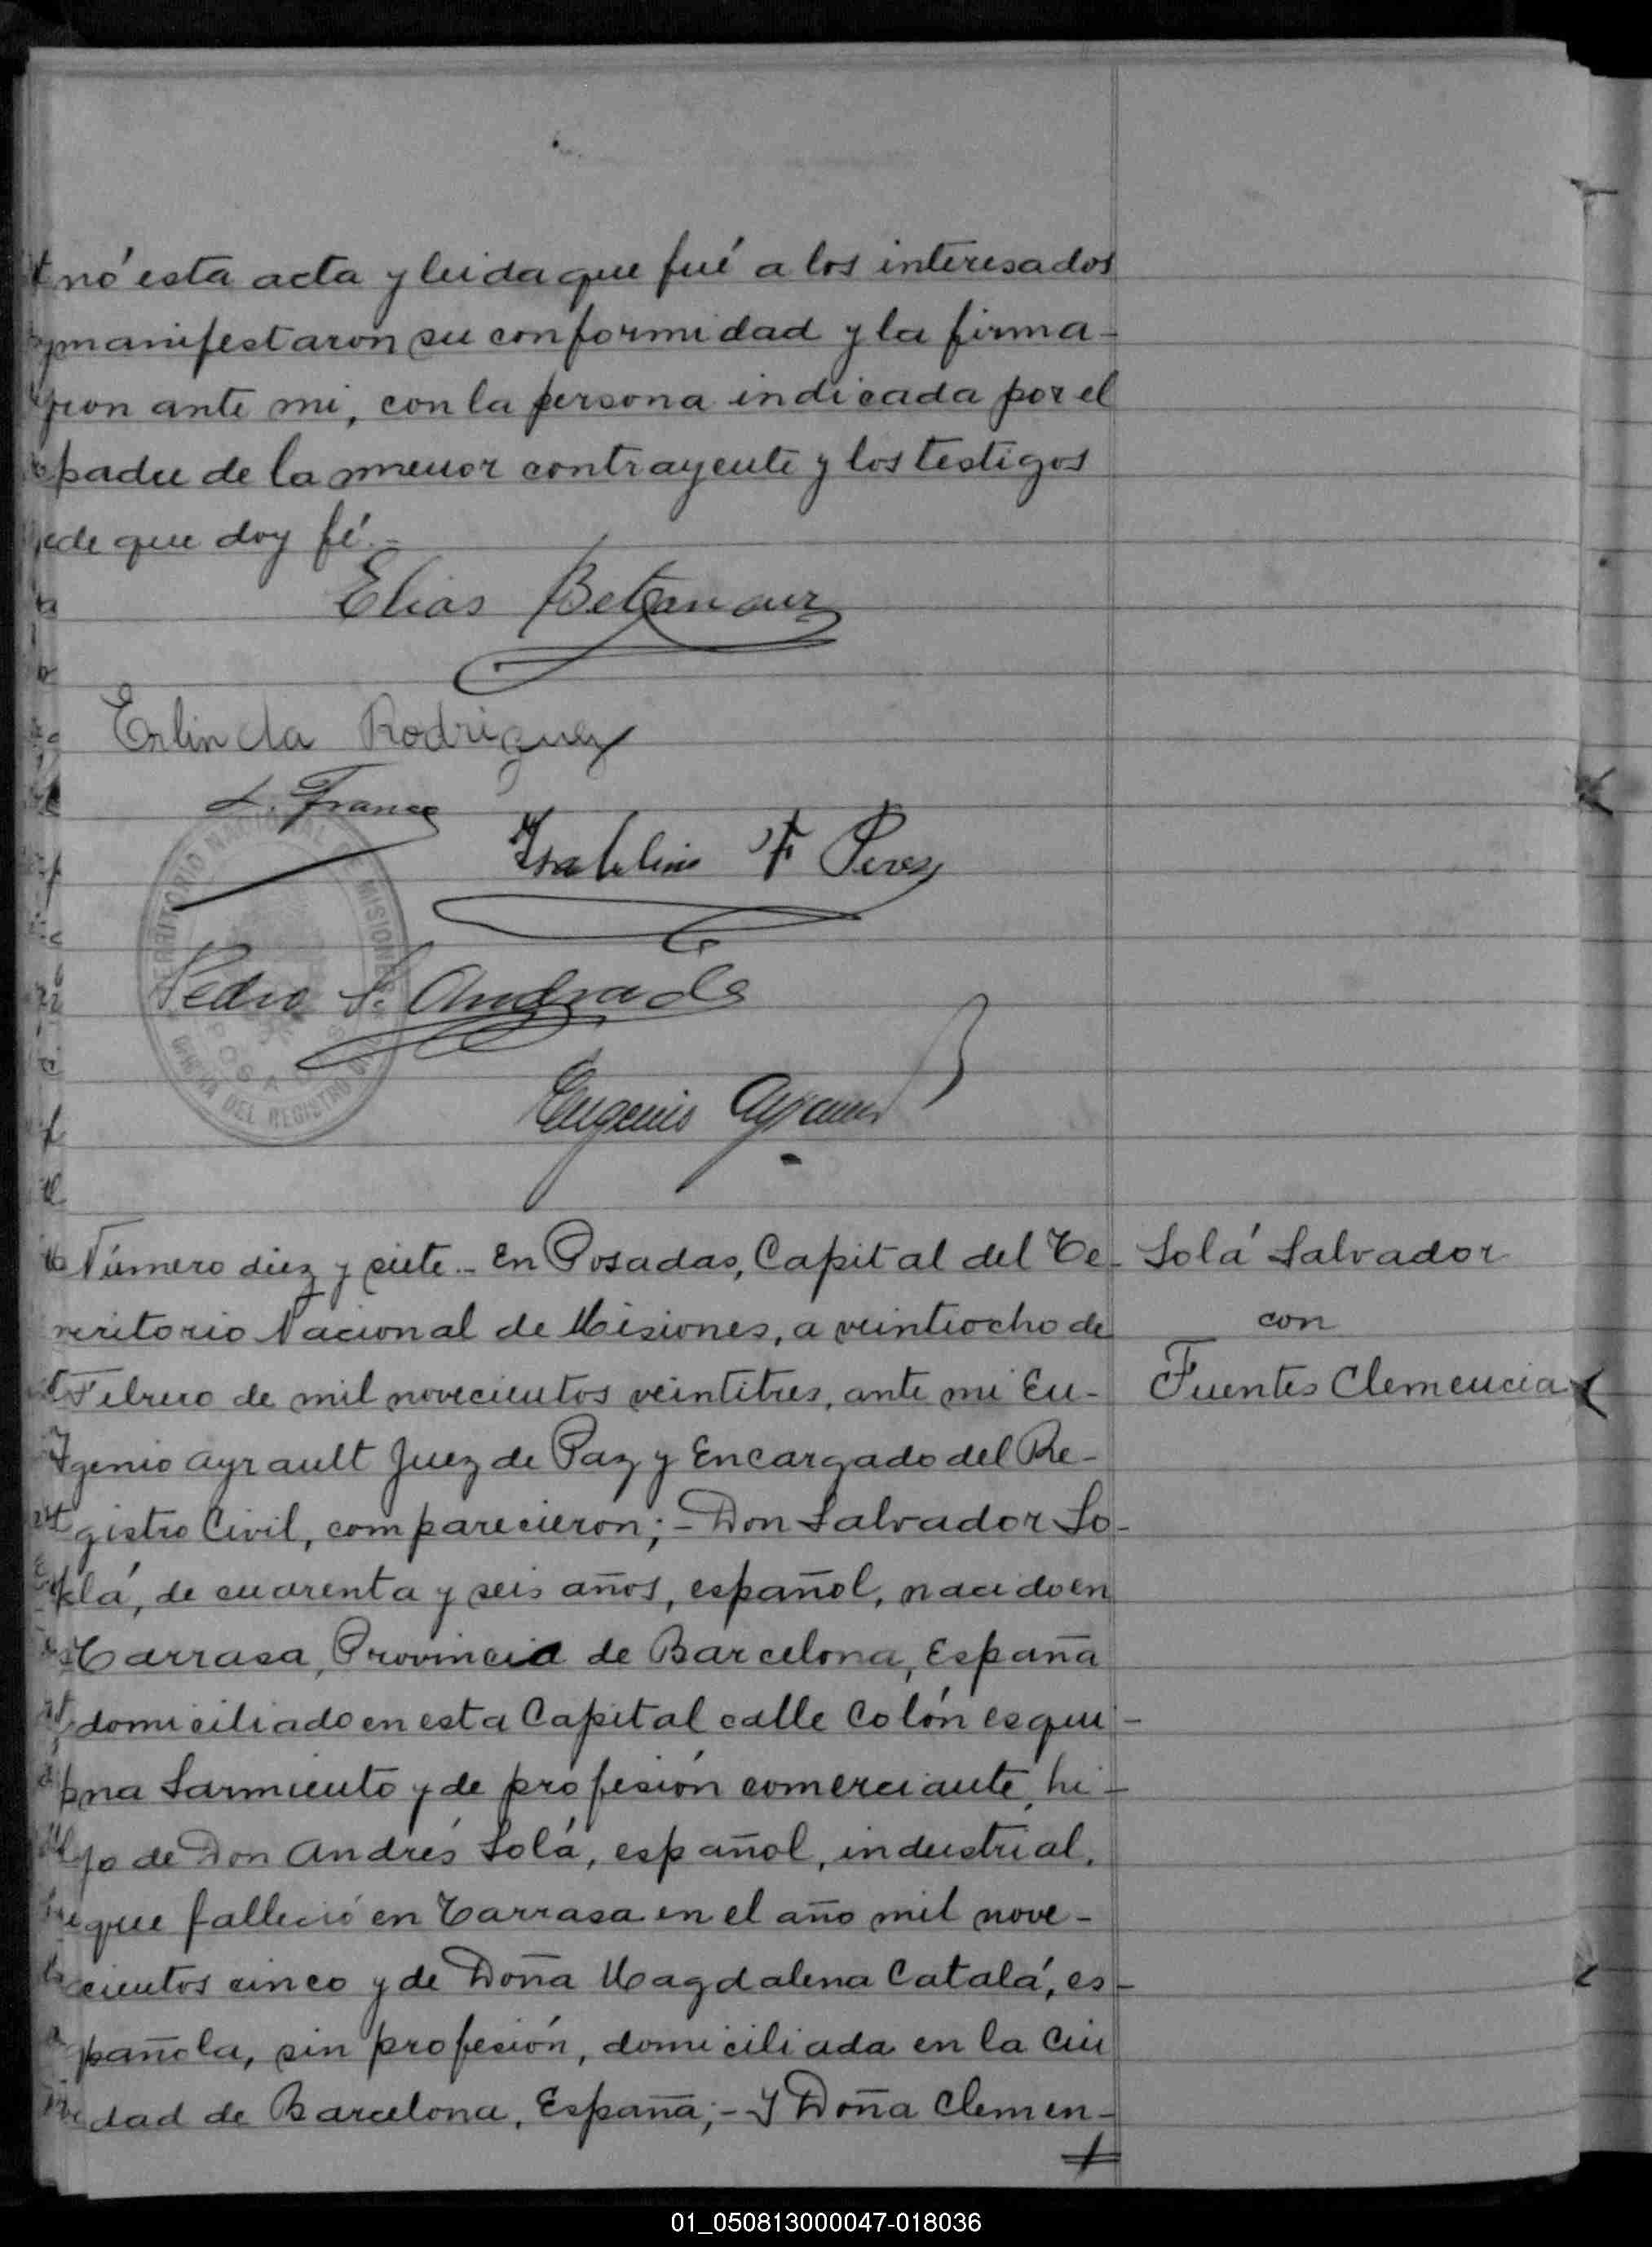 nó esta acta y leida que fué a los interesados
manifestaron su conformidad y la firma-
ron ante mi, con la persona indicada por el
padre de la menor contrayente y los testigos
de que doy fé.-
Elias Betancur
Erlinda Rodriguez
L. Franco
F. Perez
TERRITORIO NACIONAL DE MISIONES
POSADAS
DEL REGISTRO
Pedro S. Andrade
Eugenio Ayrault
Número diez y siete.- En Posadas, Capital del Te-
rritorio Nacional de Misiones, a veintiocho de
Febrero de mil novecientos veintitres, ante mi Eu-
genio Ayrault Juez de Paz y Encargado del Re-
gistro Civil, comparecieron;- Don Salvador So-
lá, de cuarenta y seis años, español, nacido en
Tarrasa, Provincia de Barcelona, España
domiciliado en esta Capital calle Colón esqui-
na Sarmiento y de profesión comerciante, hi-
jo de Don Andrés Solá, español, industrial,
que falleció en Tarrasa en el año mil nove-
cientos cinco y de Doña Magdalena Catalá, es-
pañola, sin profesión, domiciliada en la Ciu
dad de Barcelona, España;- Y Doña Clemen-
Solá Salvador
con
Fuentes Clemencia
01_050813000047-018036